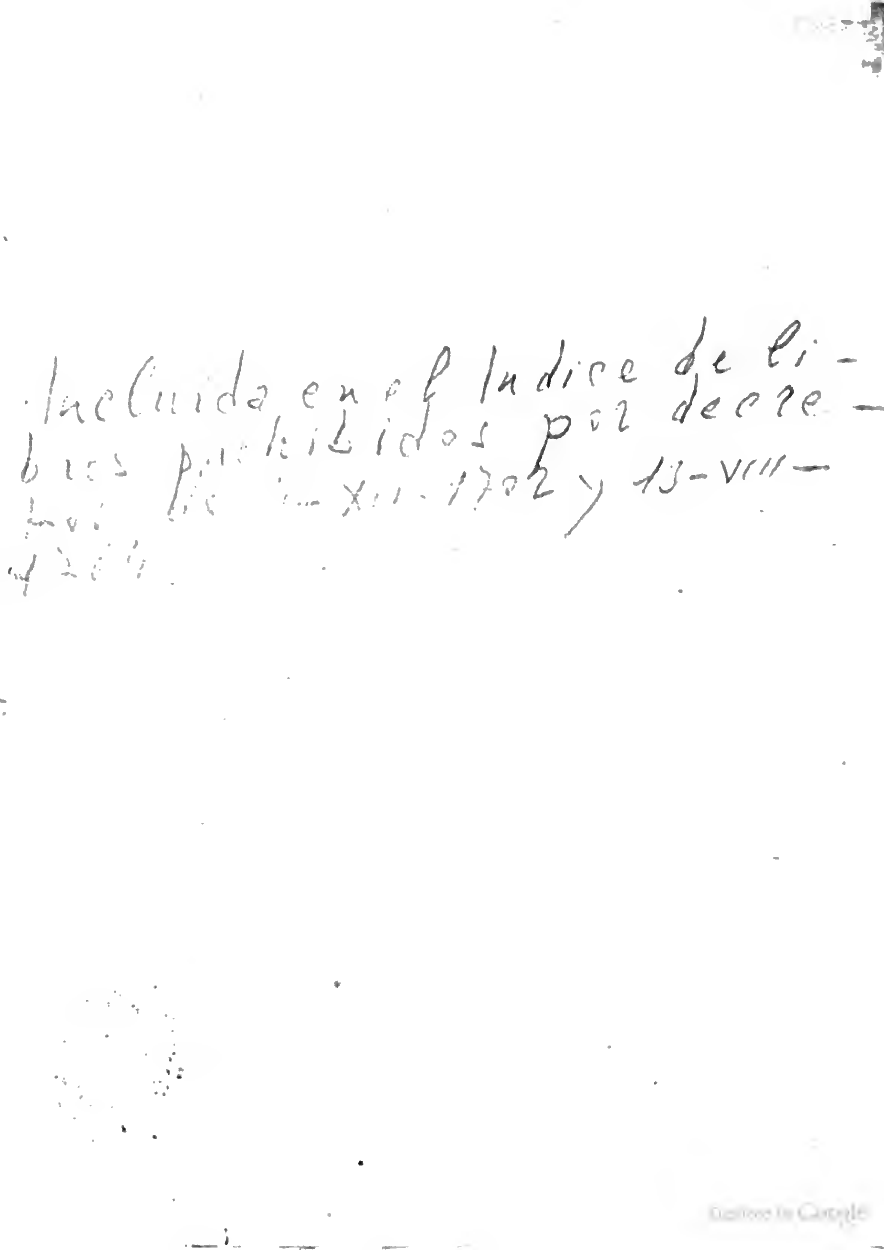 Incluida en el Indice de li-
bros prohibidos por decre-
tos de XII-1702 y 13-VIII-
Google